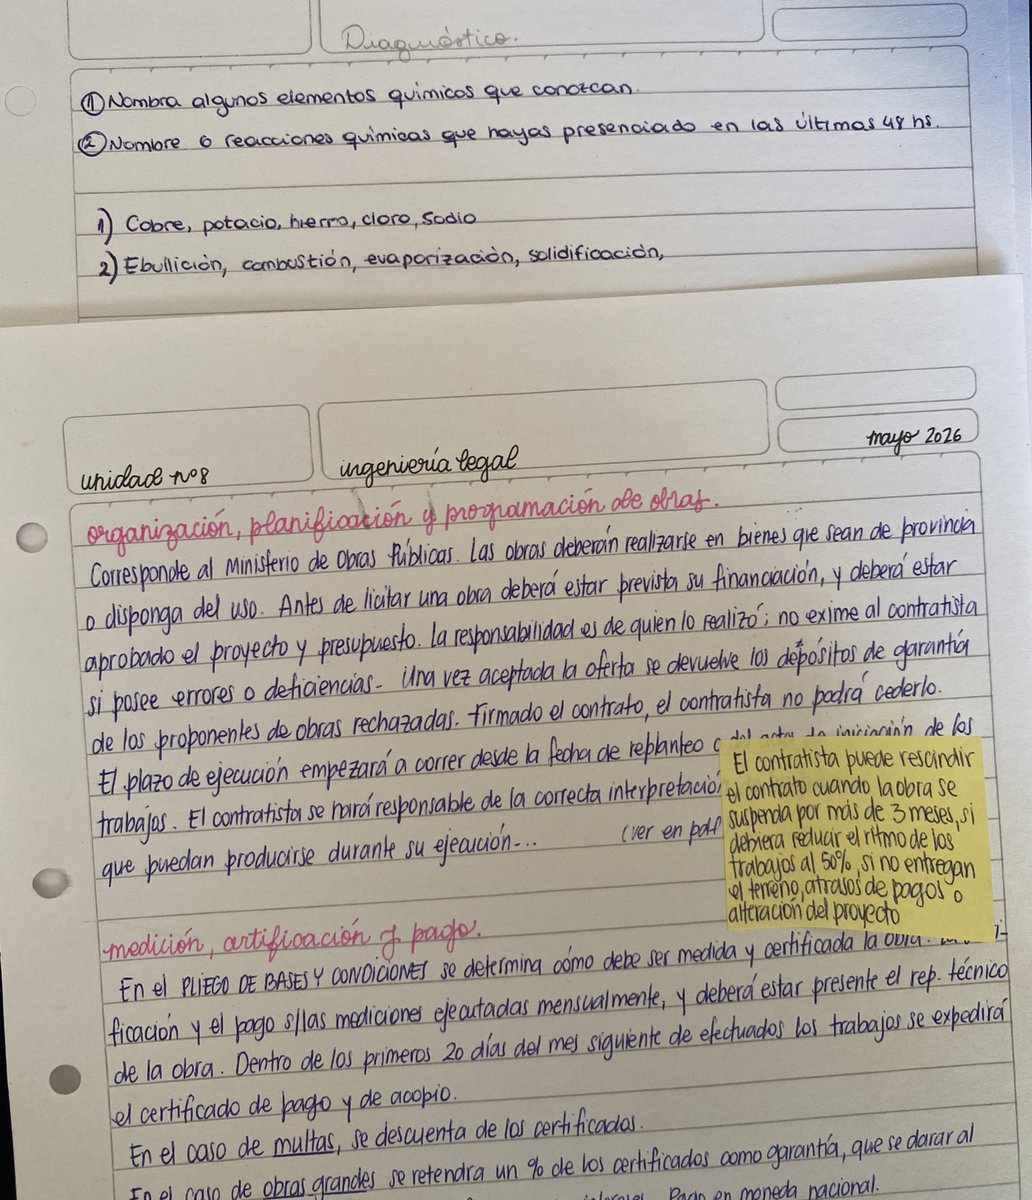 Diagnóstico.
① Nombra algunos elementos químicos que conozcan.
② Nombre 6 reacciones químicas que hayas presenciado en las últimas 48 hs.
1) Cobre, potacio, hierro, cloro, Sodio
2) Ebullición, combustión, evaporización, solidificación,
unidad nº8
ingeniería legal
mayo 2026
organización, planificación y programación de obras.
Corresponde al Ministerio de Obras Públicas. Las obras deberán realizarse en bienes que sean de provincia
o disponga del uso. Antes de licitar una obra deberá estar prevista su financiación, y deberá estar
aprobado el proyecto y presupuesto. La responsabilidad es de quien lo realizó; no exime al contratista
si posee errores o deficiencias. Una vez aceptada la oferta se devuelve los depósitos de garantía
de los proponentes de obras rechazadas. Firmado el contrato, el contratista no podrá cederlo.
El plazo de ejecución empezará a correr desde la fecha de replanteo o del acta de iniciación de los
trabajos. El contratista se hará responsable de la correcta interpretació
que puedan producirse durante su ejecución... (ver en pdf
El contratista puede rescindir
el contrato cuando la obra se
suspenda por más de 3 meses, si
debiera reducir el ritmo de los
trabajos al 50%, si no entregan
el terreno, atrasos de pagos o
alteración del proyecto
medición, certificación y pago.
En el PLIEGO DE BASES Y CONDICIONES se determina cómo debe ser medida y certificada la obra.
ficación y el pago s/las mediciones ejecutadas mensualmente, y deberá estar presente el rep. técnico
de la obra. Dentro de los primeros 20 días del mes siguiente de efectuados los trabajos se expedirá
el certificado de pago y de acopio.
En el caso de multas, se descuenta de los certificados.
En el caso de obras grandes se retendra un % de los certificados como garantía, que se darar al
Pago en moneda nacional.